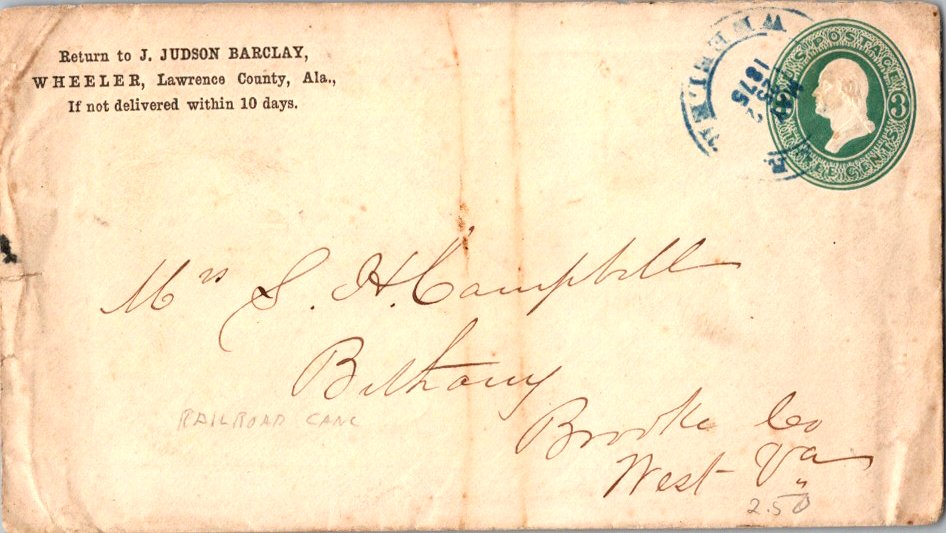 Return to J. JUDSON BARCLAY,
WHEELER, Lawrence County, Ala.,
If not delivered within 10 days.
WHEELER
MAY
1875
U.S. POSTAGE
3
THREE CENTS
Mrs S. H. Campbell
Bethany
Brooke Co
West Va
RAILROAD CANC
2.50